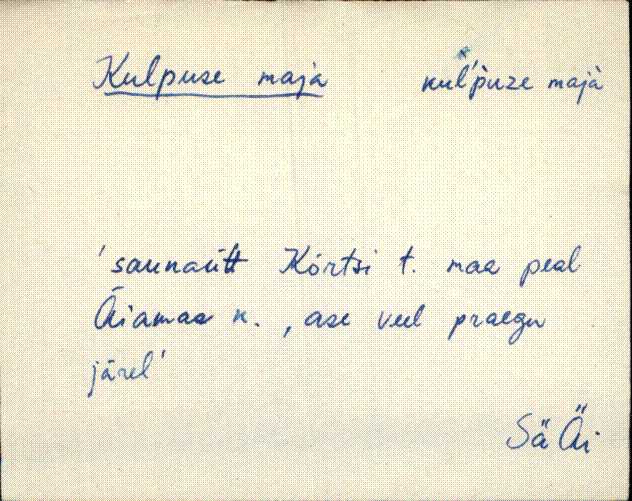 Kulpuse maja kul´p̀uze majà
'saunaütt Kõrtsi t. maa peal
Äiamaa k., ase veel praegu
järel'
Sä Äi